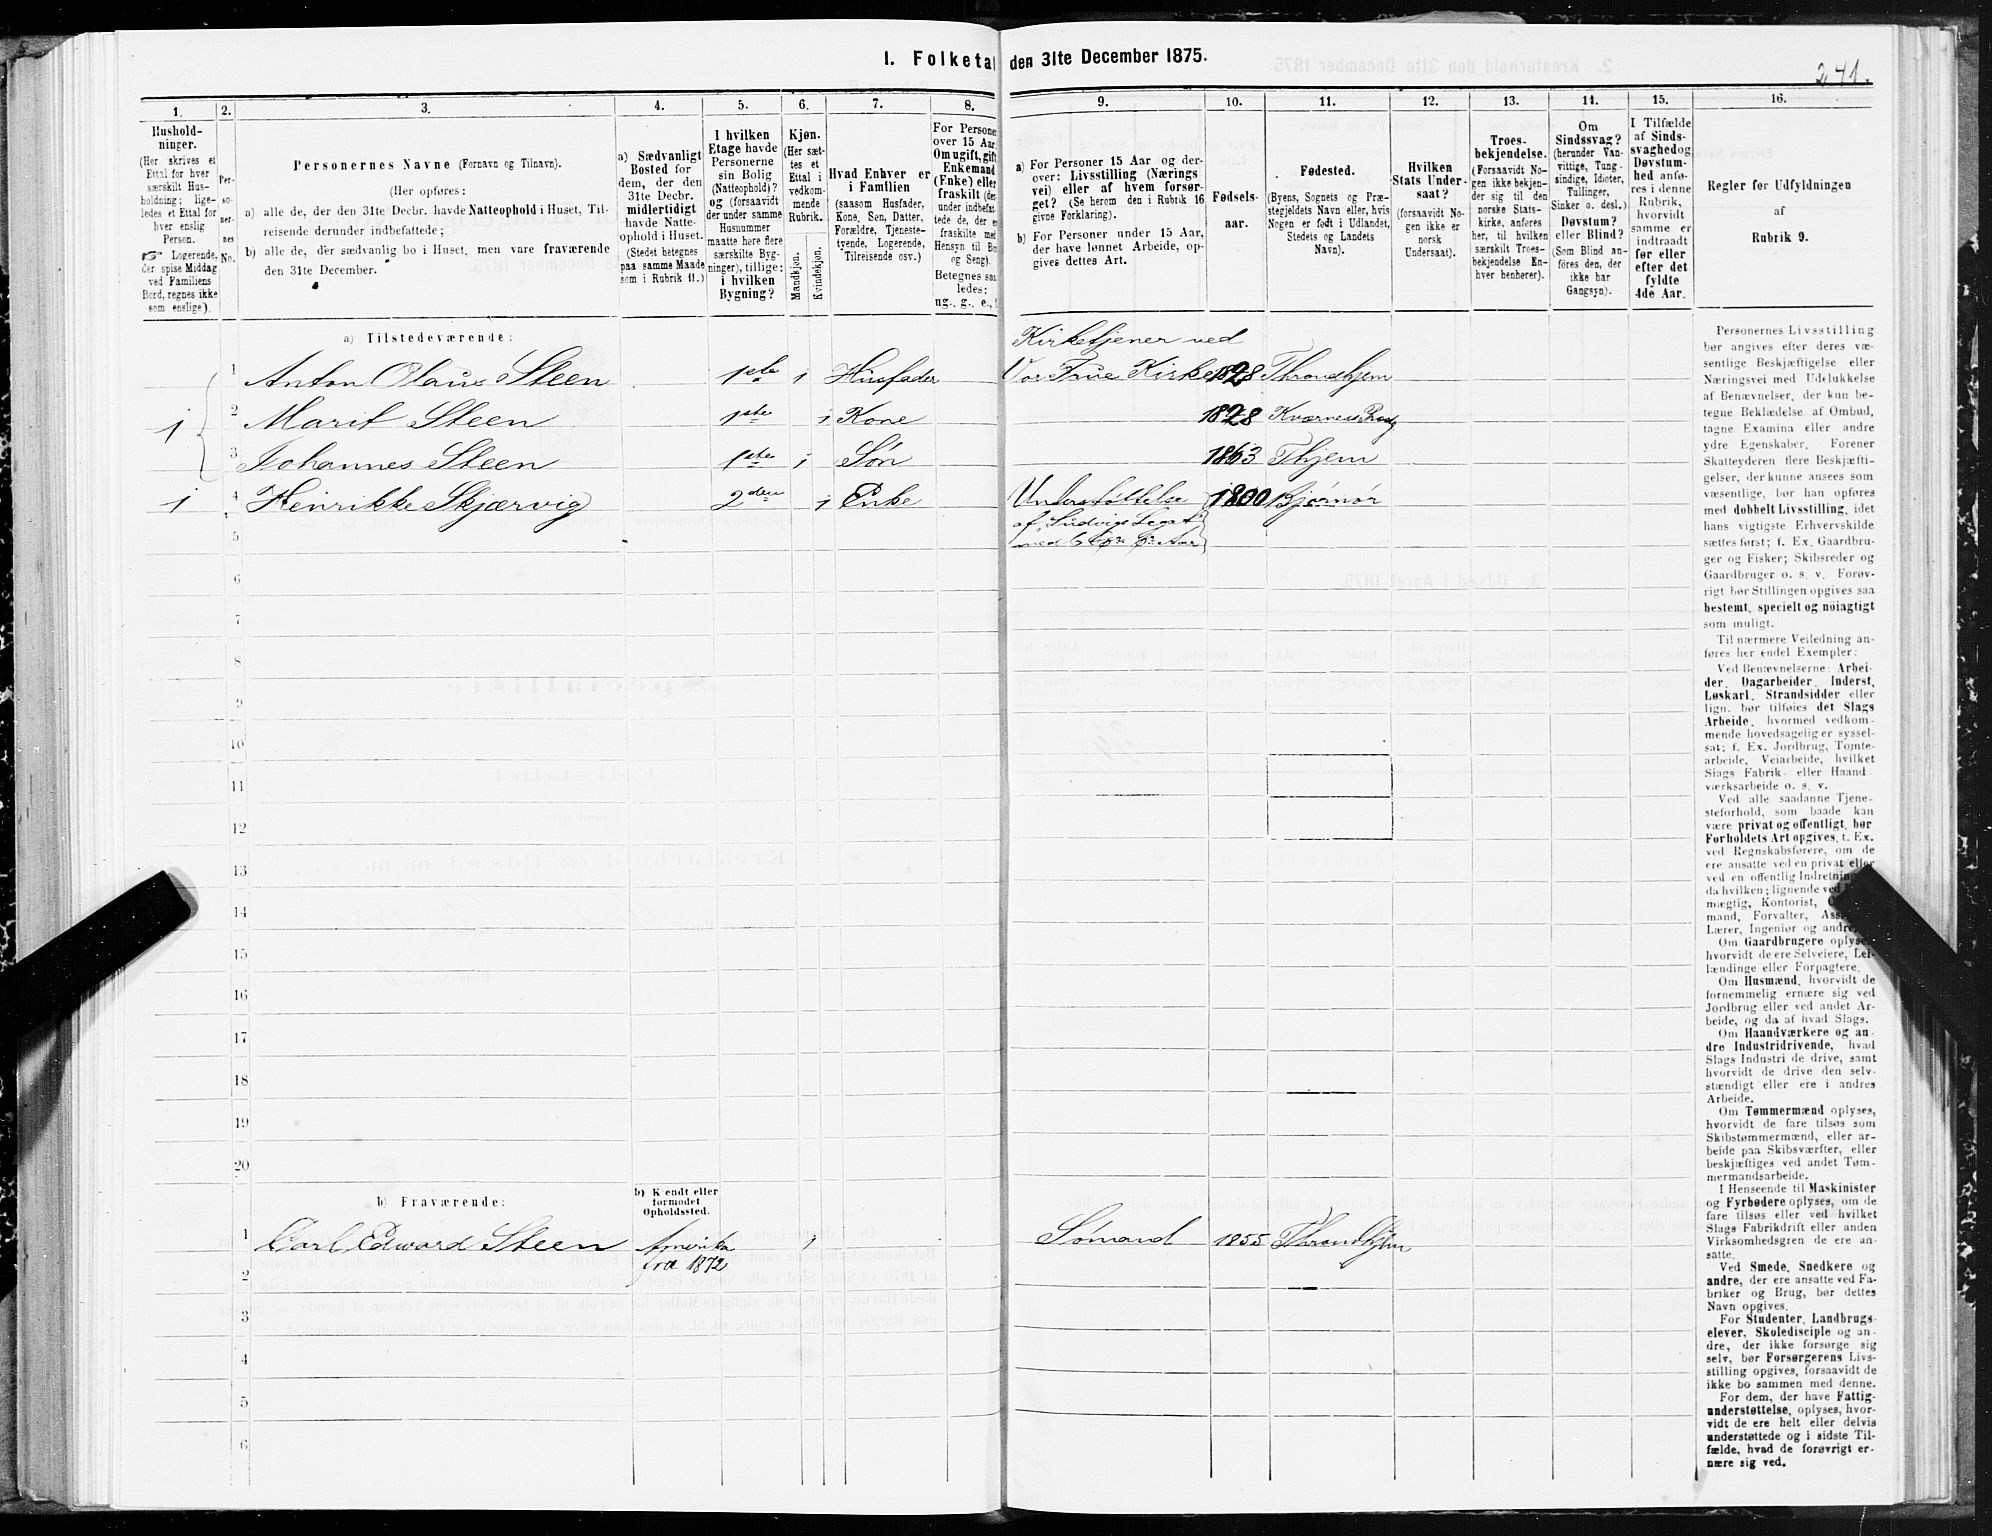 1. Folketal den 31te December 1875.
241.
1. 2. 3. 4. 5. 6. 7. 8. 9. 10. 11. 12. 13. 14. 15. 16.
Hushold-
ninger.
(Her skrives et
Ettal for hver
særskilt Hus-
holdning; lige-
ledes et Ettal for
hver enslig
Person.
☞ Logerende,
der spise Middag
ved Familiens
Bord, regnes ikke
som enslige).
Per-
so-
ner-
nes
No.
Personernes Navne (Fornavn og Tilnavn).
(Her opføres:
a) alle de, der den 31te Decbr. havde Natteophold i Huset, Til-
reisende derunder indbefattede;
b) alle de, der sædvanlig bo i Huset, men vare fraværende
den 31te December.
a) Sædvanligt
Bosted for
dem, der den
31te Decbr.
midlertidigt
havde Natte-
ophold i Huset.
(Stedet betegnes
paa samme Maade
som i Rubrik 11.)
I hvilken
Etage havde
Personerne
sin Bolig
(Natteophold)?
og (forsaavidt
der under samme
Husnummer
maatte høre flere
særskilte Byg-
ninger), tillige:
i hvilken
Bygning?
Kjøn.
(Her sæt-
tes et
Ettal i
vedkom-
mende
Rubrik.
Mandkjøn.
Kvindekjøn.
Hvad Enhver er
i Familien
(saasom Husfader,
Kone, Søn, Datter,
Forældre, Tjeneste-
tyende, Logerende,
Tilreisende osv.)
For Personer
over 15 Aar:
Om ugift, gift,
Enkemand
(Enke) eller
fraskilt (der-
under indbefat-
tede de, der er
fraskilte med
Hensyn til Bord
og Seng).
Betegnes saa-
ledes:
ug., g., e.,
a) For Personer 15 Aar og der-
over: Livsstilling (Nærings-
vei) eller af hvem forsør-
get? (Se herom den i Rubrik 16
givne Forklaring).
b) For Personer under 15 Aar,
der have lønnet Arbeide, op-
gives dettes Art.
Fødsels-
aar.
Fødested.
(Byens, Sognets og Præ-
stegjeldets Navn eller, hvis
Nogen er født i Udlandet,
Stedets og Landets
Navn).
Hvilken
Stats Under-
saat?
(forsaavidt No-
gen ikke er
norsk
Undersaat).
Troes-
bekjendelse.
(Forsaavidt No-
gen ikke bekjen-
der sig til den
norske Stats-
kirke, anføres
her, til hvilken
særskilt Troes-
bekjendelse En-
hver henhører).
Om
Sindssvag?
(herunder Van-
vittige, Tung-
sindige, Idioter,
Tullinger,
Sinker o. desl.)
Døvstum?
eller Blind?
(Som Blind an-
føres den, der
ikke har
Gangsyn).
I Tilfælde
af Sinds-
svaghed og
Døvstum-
hed anfø-
res i denne
Rubrik,
hvorvidt
samme er
indtraadt
før eller
efter det
fyldte
4de Aar.
Regler før Udfyldningen
af
Rubrik 9.
a) Tilstedeværende:
Kirketjener ved
1 Anton Olaus Steen 1ste 1 Husfader Vor Frue Kirke 1828 Throndhjem
1 2 Marit Steen 1ste 1 Kone 1828 Kværnes
3 Johannes Steen 1ste 1 Søn 1863 Thjem
1 4 Henrikke Skjærvig 2den 1 Enke Understøttelse 1800 Bjørnør
5 af Ludvigs Legat
med 6 Aar
6
7
8
9
10
11
12
13
14
15
16
17
18
19
20
b) Fraværende:
b) Kjendt eller
formodet
Opholdssted.
1 Carl Edward Steen Amerika 1 Sømand 1855 Throndhjem
2 fra 1872
3
4
5
6
Personernes Livsstilling
bør angives efter deres væ-
sentlige Beskjæftigelse eller
Næringsvei med Udelukkelse
af Benævnelser, der kun be-
tegne Beklædelse af Ombud,
tagne Examina eller andre
ydre Egenskaber. Forener
Skatteyderen flere Beskjæfti-
gelser, der kunne ansees som
væsentlige, bør han opføres
med dobbelt Livsstilling, idet
hans vigtigste Erhvervskilde
sættes først; f. Ex. Gaardbru-
ger og Fisker; Skibsreder og
Gaardbruger o. s. v. Forøv-
rigt bør Stillingen opgives saa
bestemt, specielt og nöiagtigt
som muligt.
Til nærmere Veiledning an-
føres her endel Exempler:
Ved Benævnelserne: Arbei-
der, Dagarbeider, Inderst,
Løskarl, Strandsidder eller
lign. bør tilføies det Slags
Arbeide, hvormed vedkom-
mende hovedsagelig er syssel-
sat; f. Ex. Jordbrug, Tomte-
arbeide, Veiarbeide, hvilket
Slags Fabrik- eller Haand-
værksarbeide o. s. v.
Ved alle saadanne Tjene-
steforhold, som baade kan
være privat og offentligt, bør
Forholdets Art opgives, t. Ex.
ved Regnskabsførere, om de
ere ansatte ved en privat eller
ved en offentlig Indretning og
da hvilken; lignende ved
mægtig, Kontorist,
mand, Forvalter,
Lærer, Ingeniør og andre.
Om Gaardbrugere oplyses,
hvorvidt de ere Selveiere, Lei-
lændinge eller Forpagtere.
Om Husmænd, hvorvidt de
fornemmelig ernære sig ved
Jordbrug eller ved andet Ar-
beide, og da af hvad Slags.
Om Haandværkere og an-
dre Industridrivende, hvad
Slags Industri de drive, samt
hvorvidt de drive den selv-
stændigt eller ere i andres
Arbeide.
Om Tømmermænd oplyses,
hvorvidt de fare tilsøs som
Skibstømmermænd, eller ar-
beide paa Skibsværfter, eller
beskjæftiges ved andet Tøm-
mermandsarbeide.
I Henseende til Maskinister
og Fyrbødere oplyses, om de
fare tilsøs eller ved hvilket
Slags Fabrikdrift eller anden
Virksomhedsgren de ere an-
satte.
Ved Smede, Snedkere og
andre, der ere ansatte ved Fa-
briker og Brug, bør dettes
Navn opgives.
For Studenter, Landbrugs-
elever, Skoledisciple og an-
dre, der ikke forsørge sig
selv, bør Forsørgerens Livs-
stilling opgives, forsaavidt de
ikke bo sammen med denne.
For dem, der have Fattig-
understøttelse, oplyses, hvor-
vidt de ere helt eller delvis
understøttede og i sidste Til-
fælde, hvad de forøvrigt er-
nære sig ved.